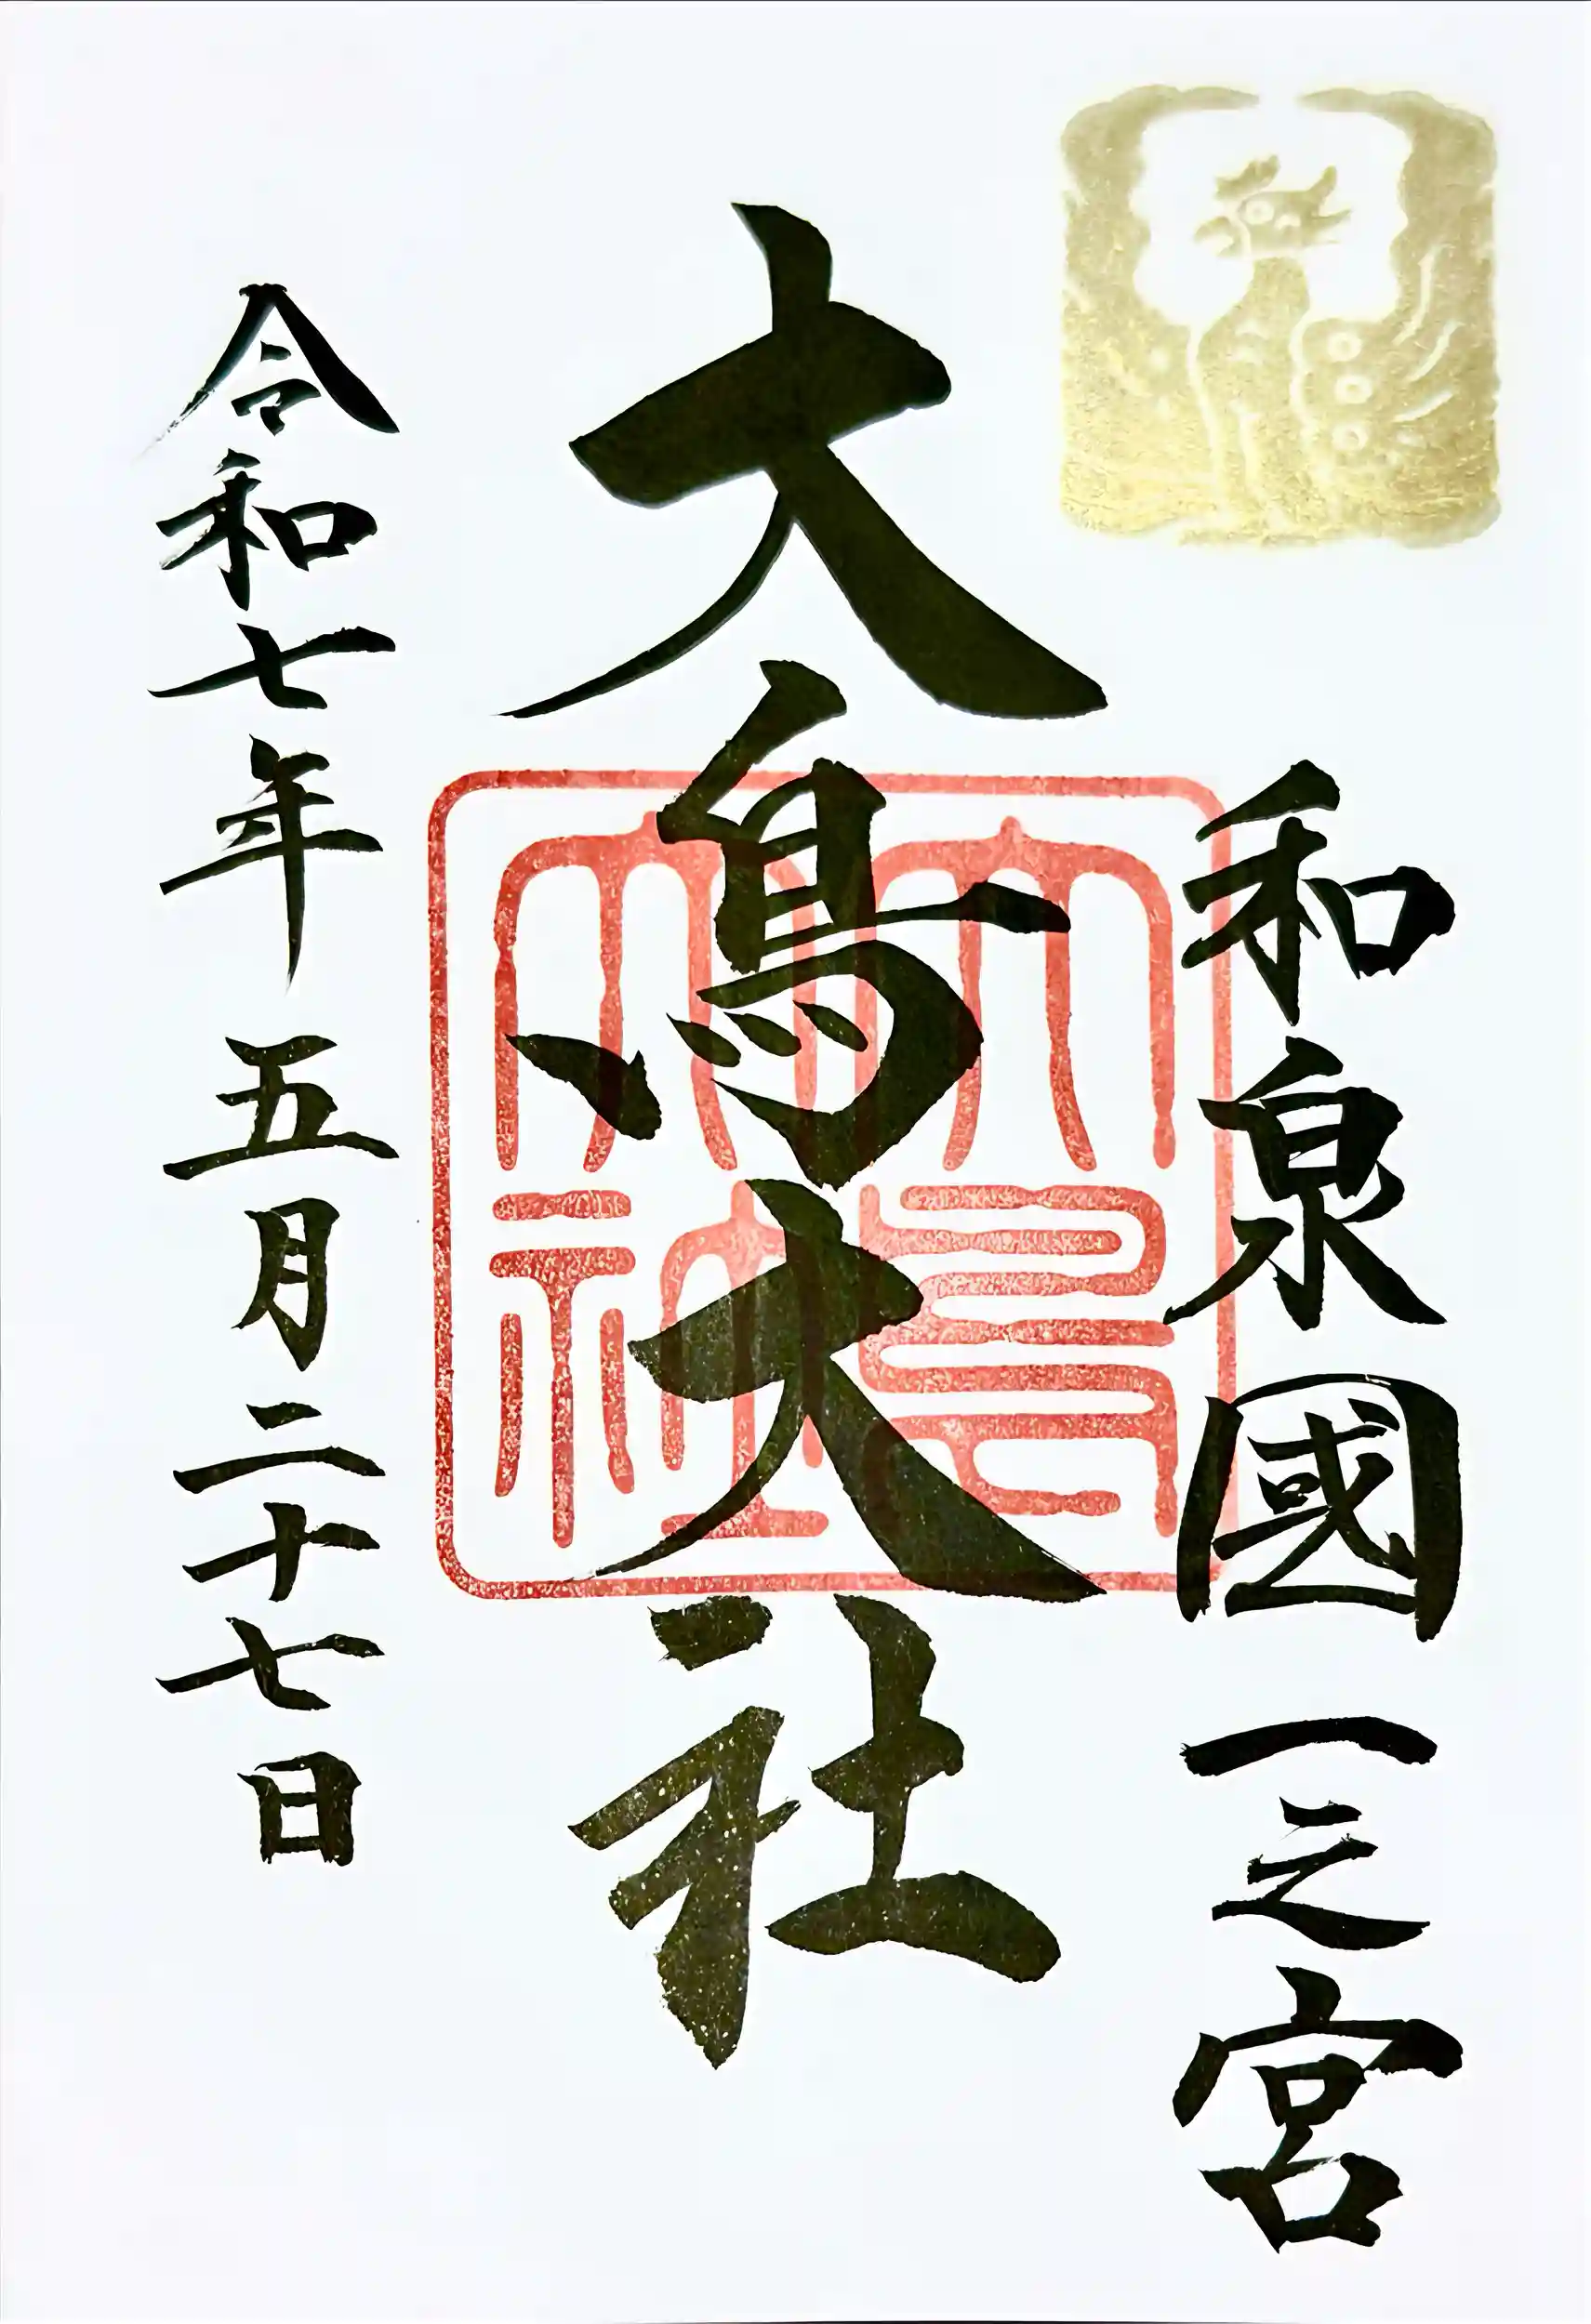 和泉國一之宮
大鳥大社
令和七年 五月二十七日
大鳥大社